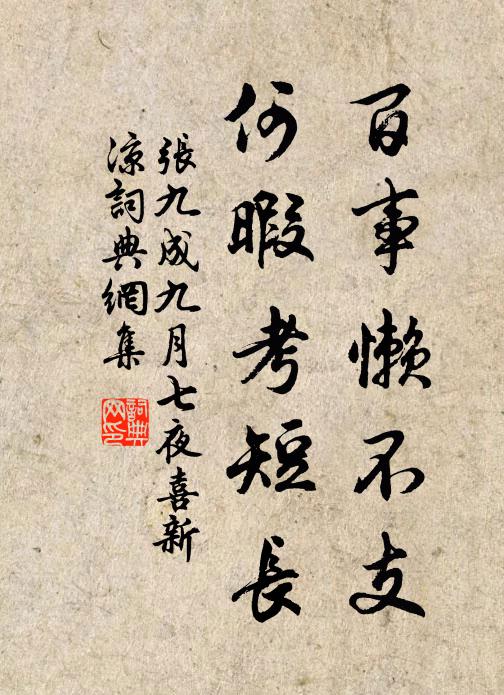 百事懒不支
何暇考短長
張九成九月七夜喜新
涼詞典網集
詞典
网印